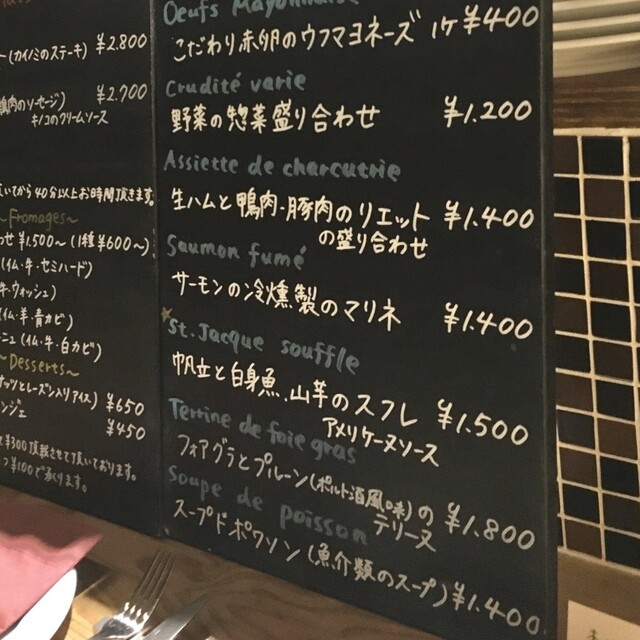 (カイノミのステーキ) ¥2.800
鴨肉のソーセージ) ¥2.700
キノコのクリームソース
いてから40分以上お時間頂きます。
~Fromages~
わせ ¥1.500~ (1種¥600~)
(仏・牛・セミハード)
牛・ウォッシュ)
(仏・羊・青カビ)
ニュ (仏・牛・白カビ)
~Desserts~
ナッツとレーズン入りアイス) ¥650
ンジェ ¥450
¥300頂戴させて頂いております。
¥100で承ります。
Oeufs Mayonnaise
こだわり赤卵のウフマヨネーズ 1ケ ¥400
Crudité varie
野菜の惣菜盛り合わせ ¥1.200
Assiette de charcutrie
生ハムと鴨肉・豚肉のリエット ¥1.400
の盛り合わせ
Saumon fumé
サーモンの冷燻製のマリネ ¥1.400
St.Jacque souffle
帆立と白身魚、山芋のスフレ ¥1.500
アメリケーヌソース
Terrine de foie gras
フォアグラとプルーン(ポルト酒風味)の ¥1.800
テリーヌ
Soupe de poisson
スープドポワソン(魚介類のスープ) ¥1.400